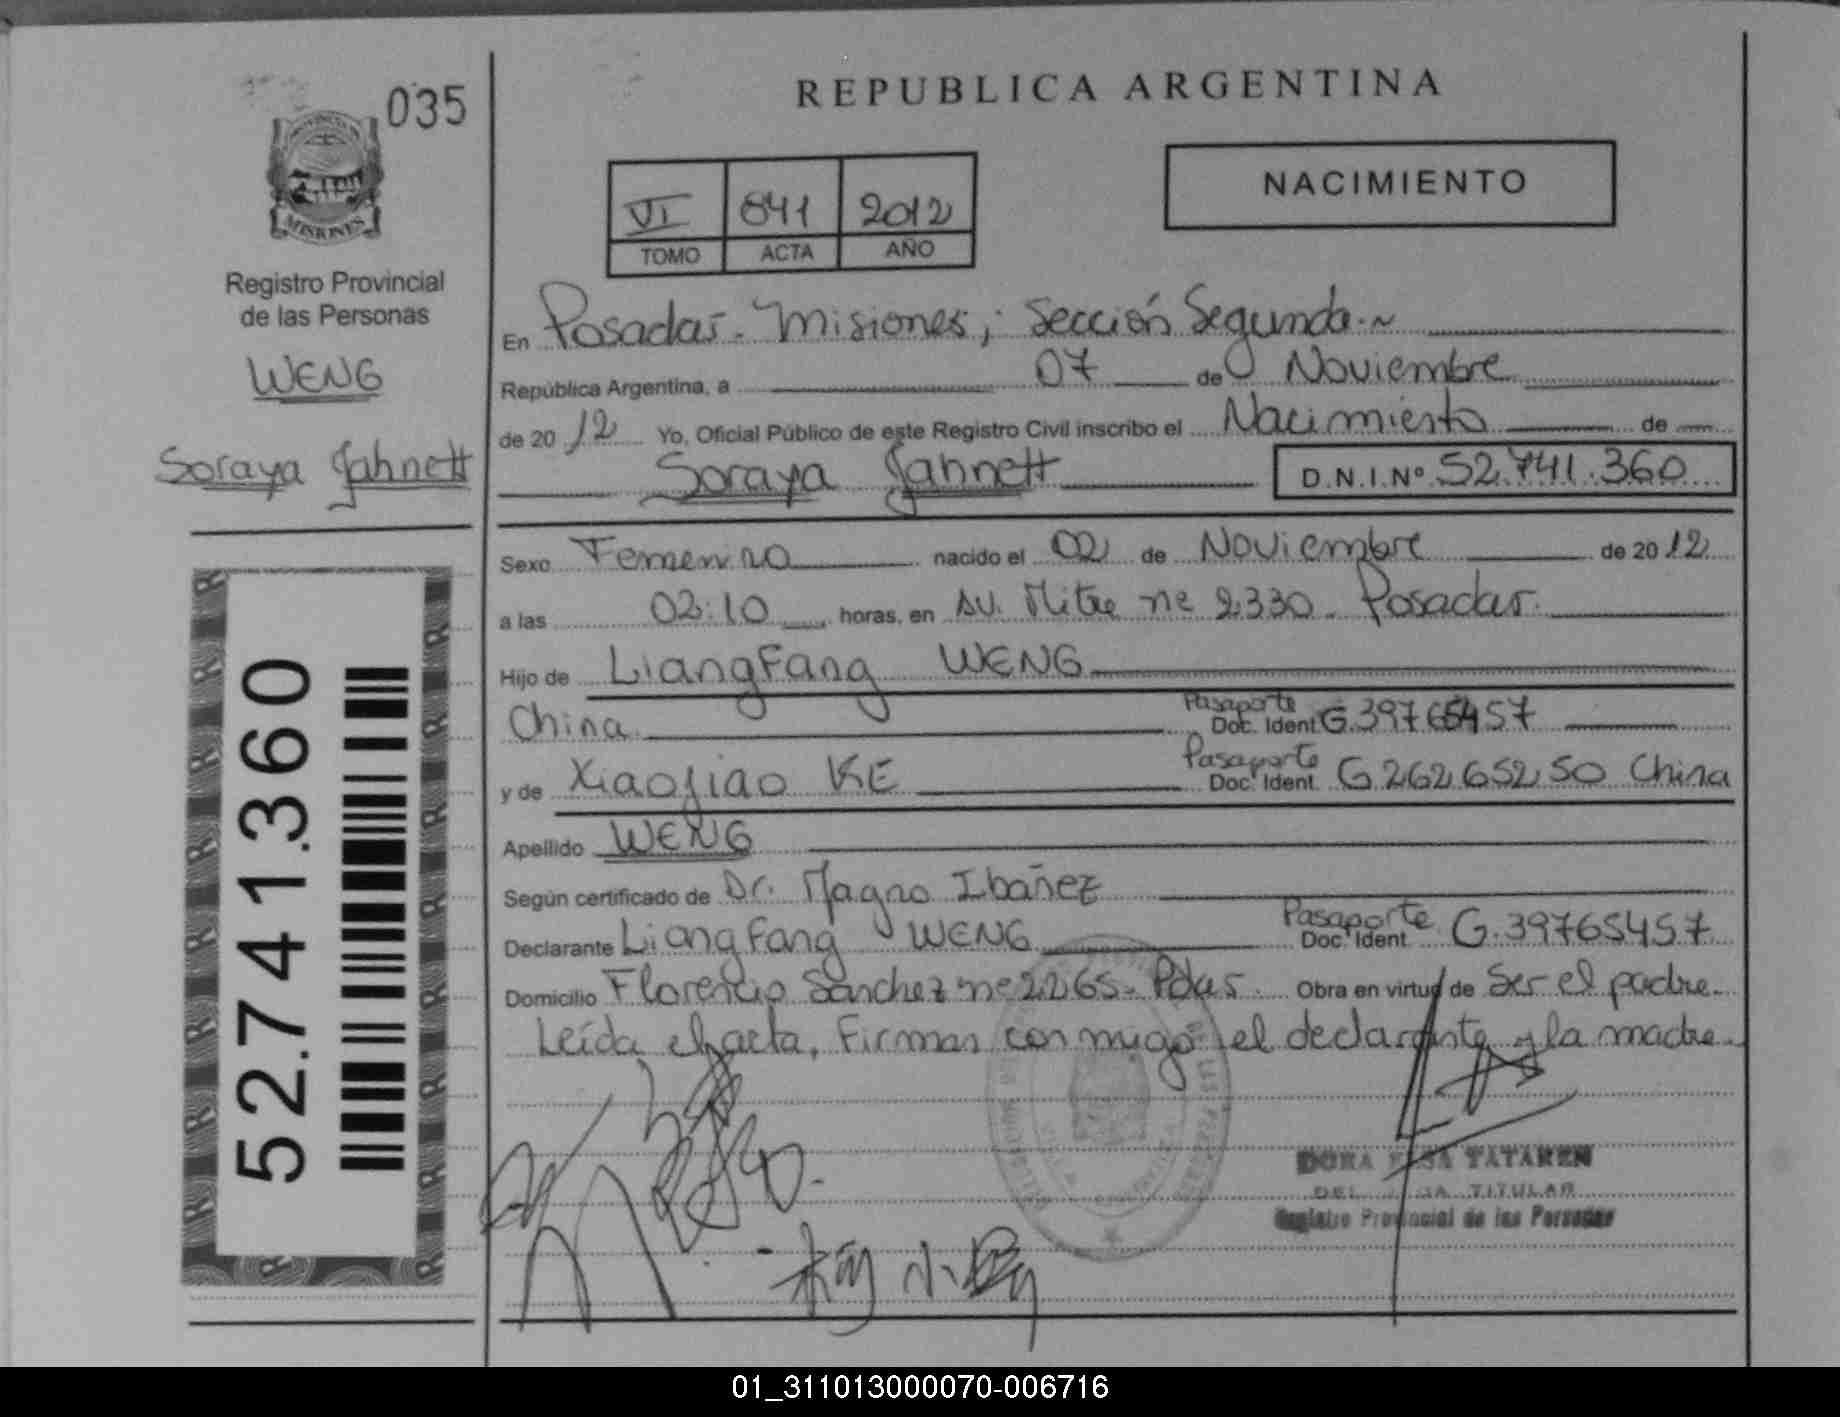 035
PROVINCIA DE
MISIONES
Registro Provincial
de las Personas
WENG
Soraya Jahnett
52.741.360
REPUBLICA ARGENTINA
VI 841 2012
TOMO ACTA AÑO
NACIMIENTO
En Posadas - Misiones; Sección Segunda.~
República Argentina, a 07 de Noviembre
de 20 12 Yo, Oficial Público de este Registro Civil inscribo el Nacimiento de
Soraya Jahnett D.N.I.Nº 52.741.360
Sexo Femenino nacido el 02 de Noviembre de 20 12
a las 02:10 horas, en Av. Mitre nº 2330 - Posadas.
Hijo de LiangFang WENG
China. Pasaporte Doc. Ident G.39765457
y de XiaoJiao KE Pasaporte Doc. Ident. G26265250 China
Apellido WENG
Según certificado de Dr. Magno Ibañez
Declarante LiangFang WENG Pasaporte Doc. Ident G.39765457
Domicilio Florencio Sánchez nº 2265 - Pdas. Obra en virtud de Ser el padre.
Leída el acta, Firman conmigo el declarante y la madre.
DORA TATAREN
TITULAR
Registro Provincial de las Personas
柯小
01_311013000070-006716